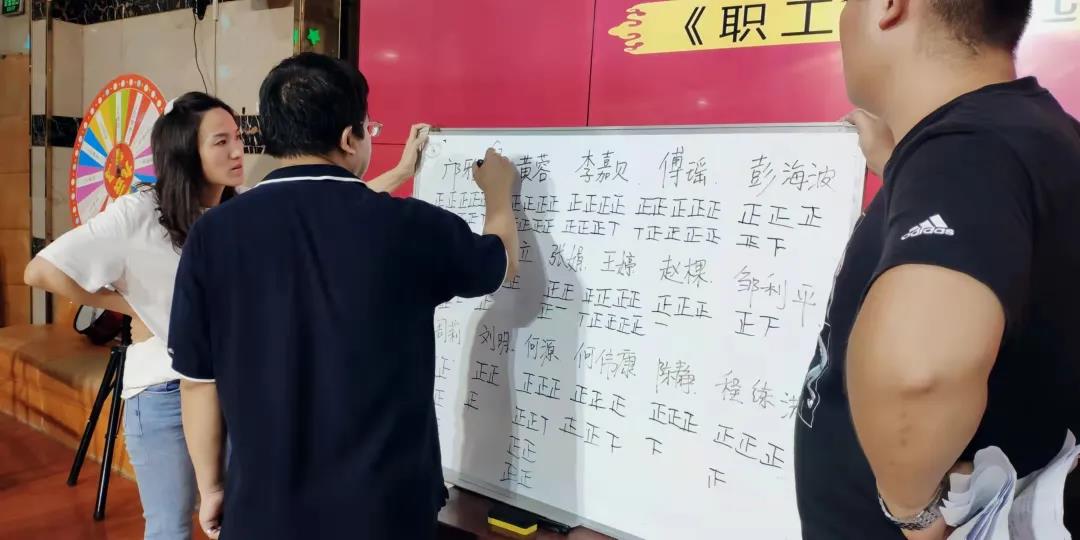 《职工
黄蓉 李嘉贝 傅瑶 彭海波
正正正正正 正正正正 正正正正 正正正正正 正正正
正正正 正正正丅 丅正正正正 正下
立 张娟 王婷 赵棵 邹利平
正正 正正正正 正正正 正下
正 正一 丅正正正正 一
周莉 刘明 何源 何伟康 陈静 程练
正 正正 正正正 正正正 正正正 正正正
正 正正丅 正正下 下 正
正正
正正
adidas